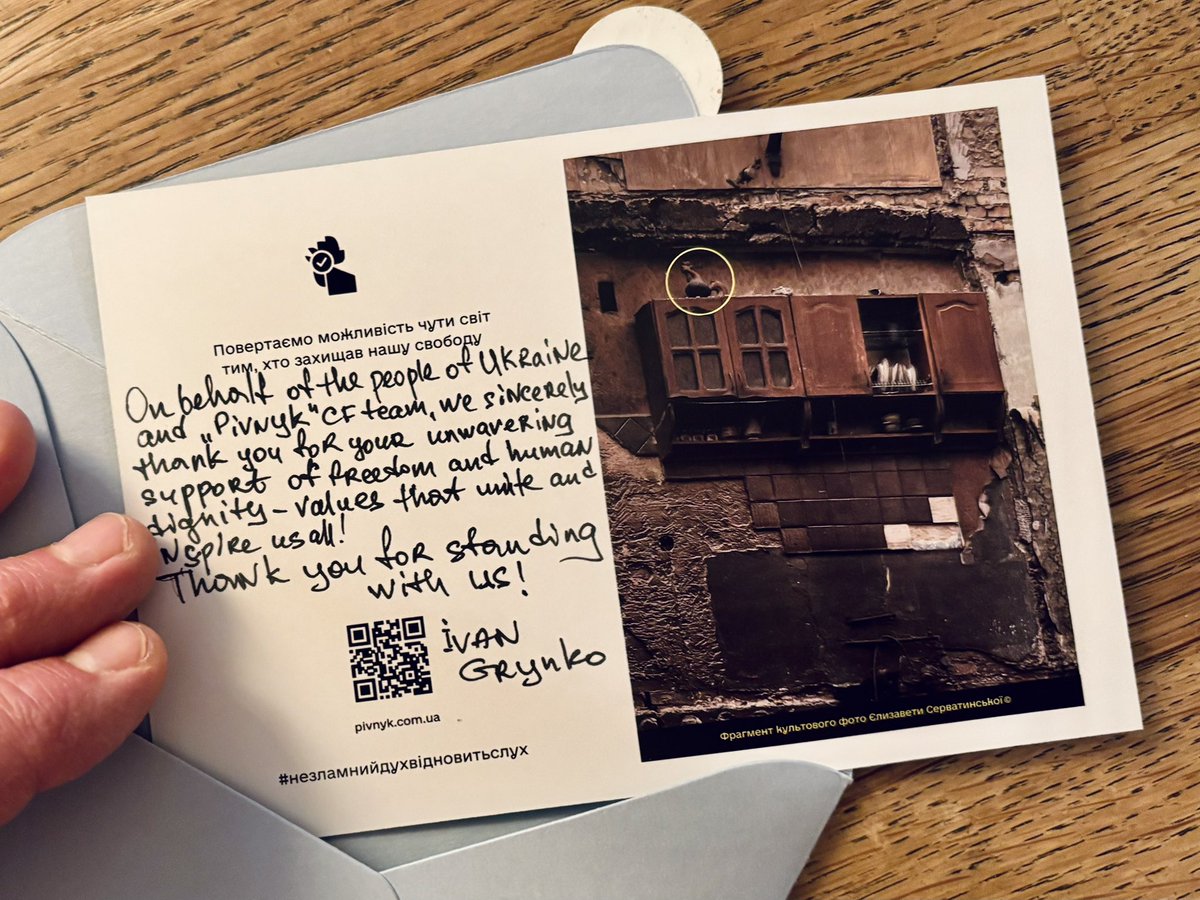 Повертаємо можливість чути світ
тим, хто захищав нашу свободу
On behalf of the people of Ukraine
and „Pivnyk" CF team, we sincerely
thank you for your unwavering
support of freedom and human
dignity – values that unite and
inspire us all!
Thank you for standing
with us!
Ivan
Grynko
pivnyk.com.ua
#незламнийдухвідновитьслух
Фрагмент культового фото Єлизавети Серватинської©